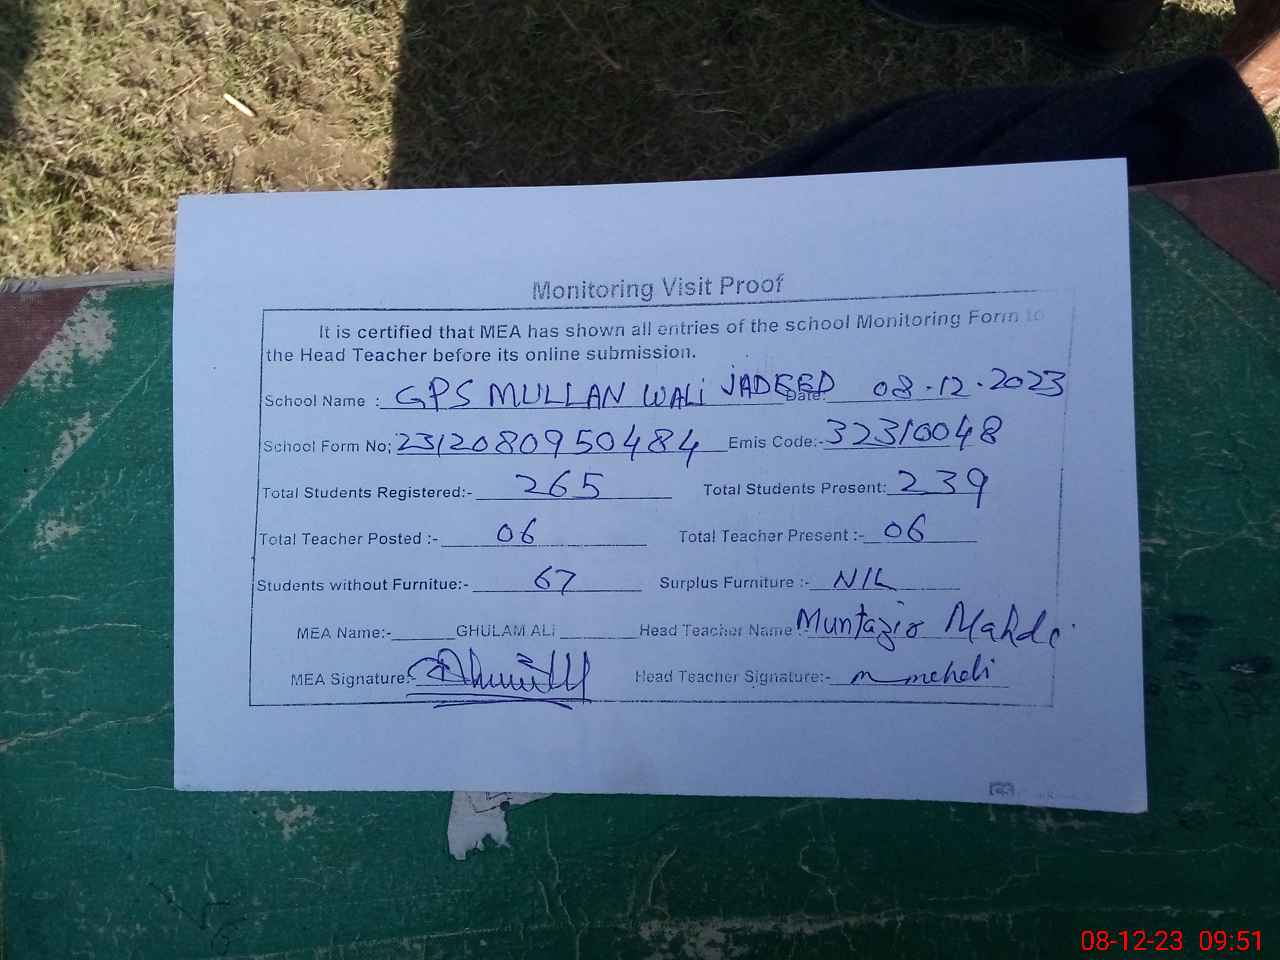 Monitoring Visit Proof
It is certified that MEA has shown all entries of the school Monitoring Form to
the Head Teacher before its online submission.
School Name : GPS MULLAN WALI JADEED Date: 08-12-2023
School Form No; 2312080950484 Emis Code:- 32310048
Total Students Registered:- 265 Total Students Present: 239
Total Teacher Posted :- 06 Total Teacher Present :- 06
Students without Furnitue:- 67 Surplus Furniture :- NIL
MEA Name:- GHULAM ALi Head Teacher Name :- Muntazir Mahdi
MEA Signature:- Head Teacher Signature:- m mehdi
08-12-23 09:51